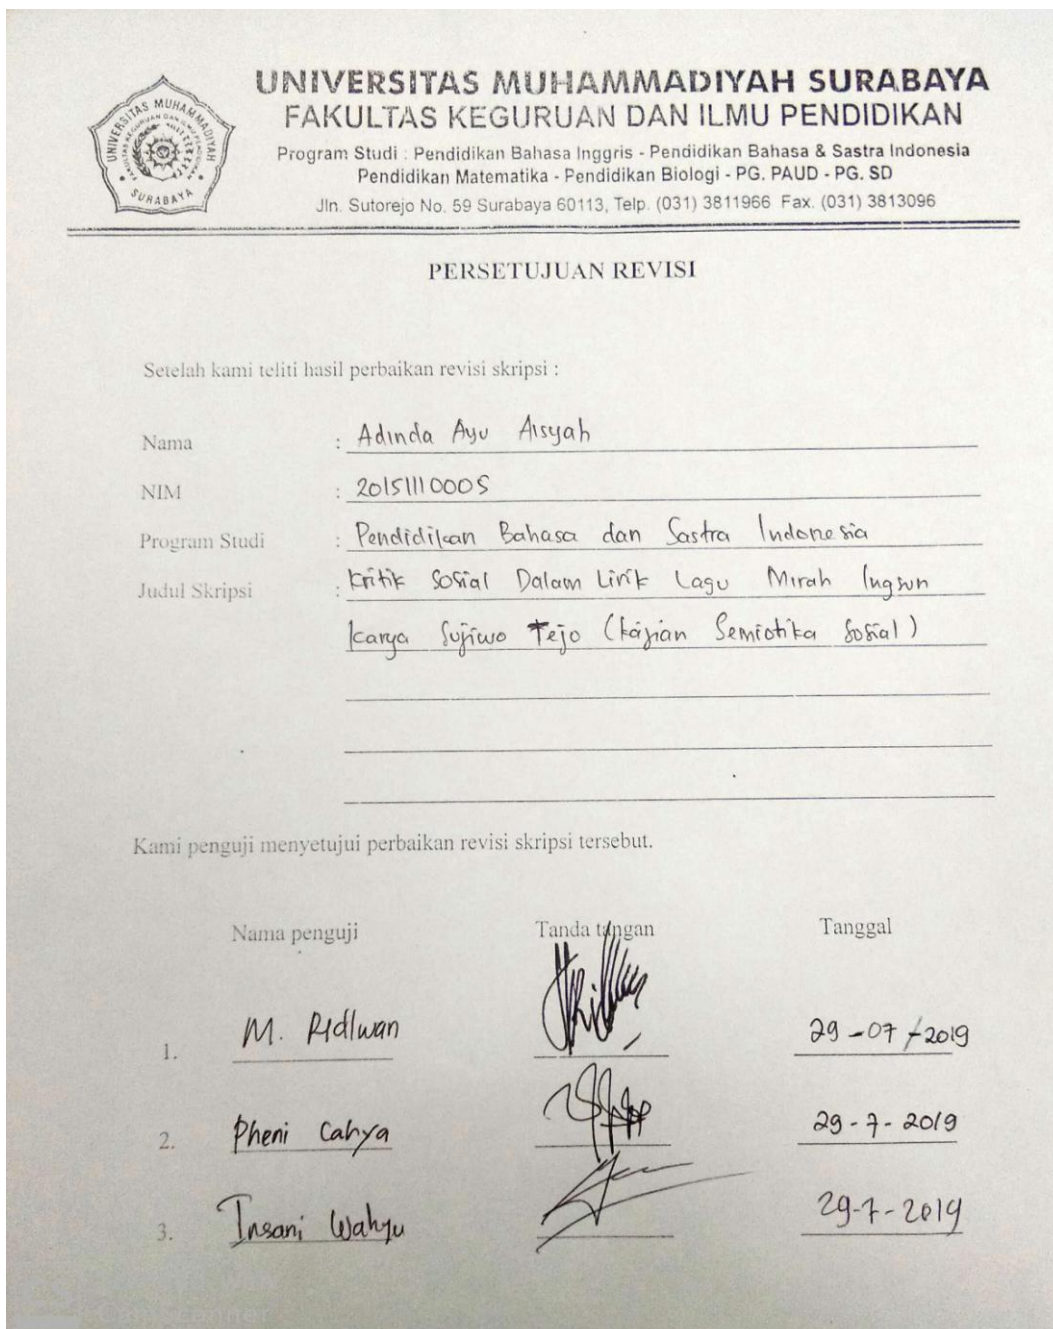 UNIVERSITAS MUHAMMADIYAH SURABAYA
FAKULTAS KEGURUAN DAN ILMU PENDIDIKAN
Program Studi : Pendidikan Bahasa Inggris - Pendidikan Bahasa & Sastra Indonesia
Pendidikan Matematika - Pendidikan Biologi - PG. PAUD - PG. SD
Jln. Sutorejo No. 59 Surabaya 60113, Telp. (031) 3811966 Fax. (031) 3813096
UNIVERSITAS MUHAMMADIYAH
FAKULTAS KEGURUAN DAN ILMU PENDIDIKAN
SURABAYA
PERSETUJUAN REVISI
Setelah kami teliti hasil perbaikan revisi skripsi :
Nama : Adinda Ayu Aisyah
NIM : 20151110005
Program Studi : Pendidikan Bahasa dan Sastra Indonesia
Judul Skripsi : Kritik Sosial Dalam Lirik Lagu Mirah Ingsun
Karya Sujiwo Tejo (Kajian Semiotika Sosial)
Kami penguji menyetujui perbaikan revisi skripsi tersebut.
Nama penguji Tanda tangan Tanggal
1. M. Ridlwan 29-07-2019
2. Pheni Cahya 29-7-2019
3. Insani Wahyu 29-7-2019
CamScanner